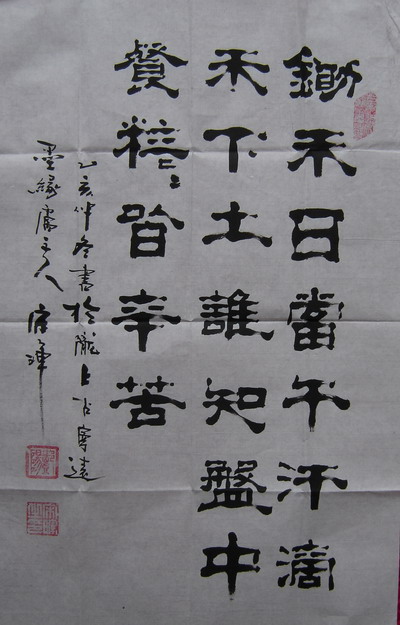 鋤禾日當午汗滴
禾下土誰知盤中
餐粒〻皆辛苦
乙亥仲冬書於隴上古寧遠
墨緣主人